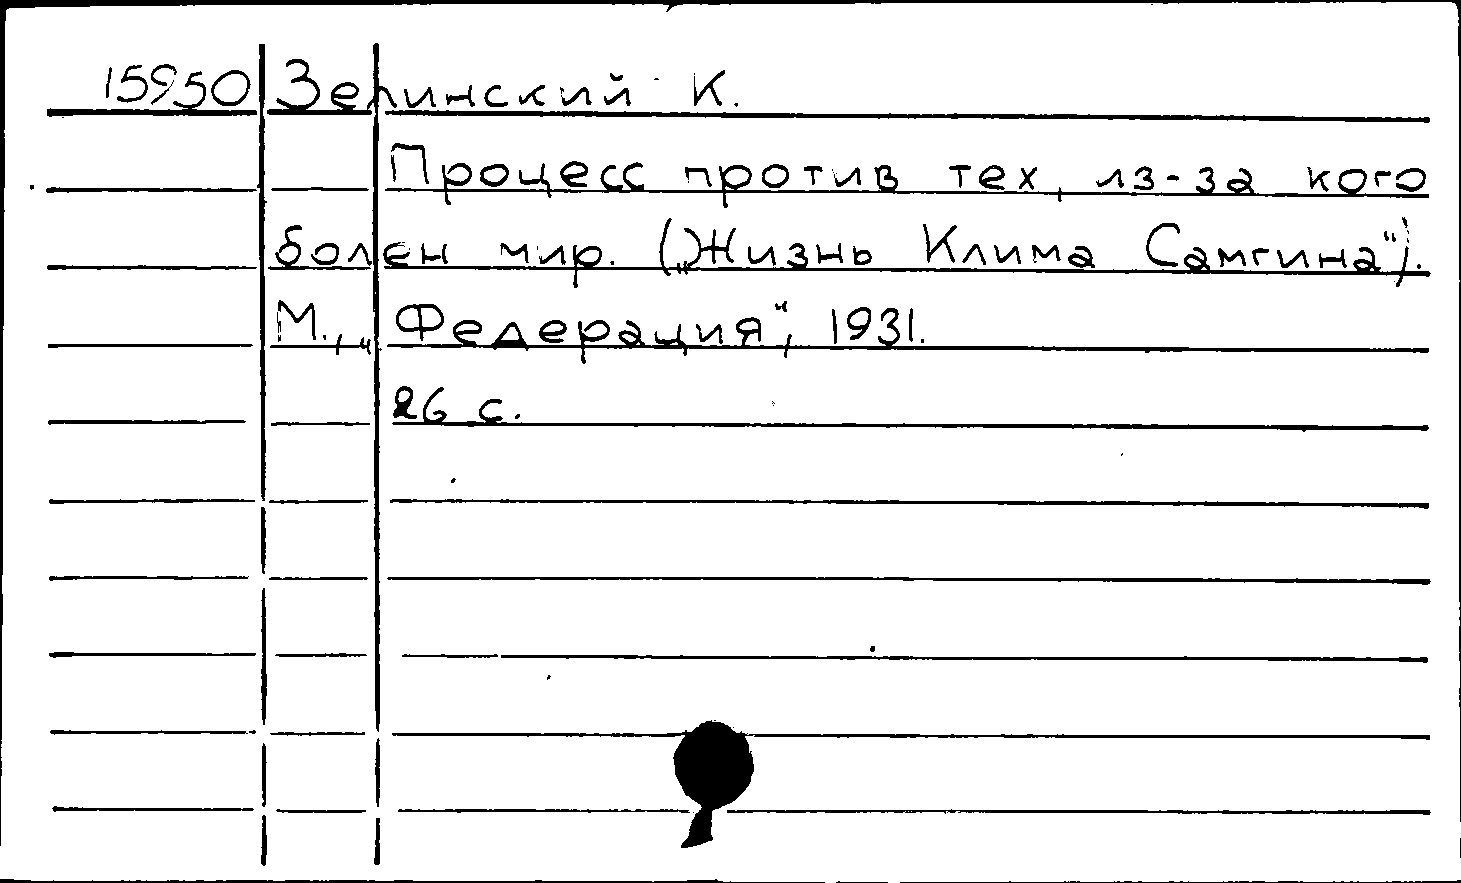 15950 Зелинский К.
Процесс против тех, из-за кого
болен мир. („Жизнь Клима Самгина“).
М., „Федерация“, 1931.
26 с.